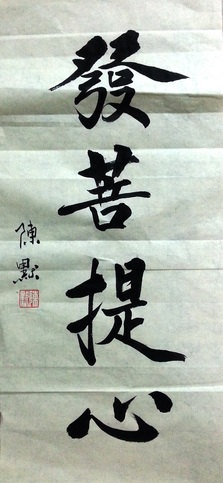 發菩提心
陳默